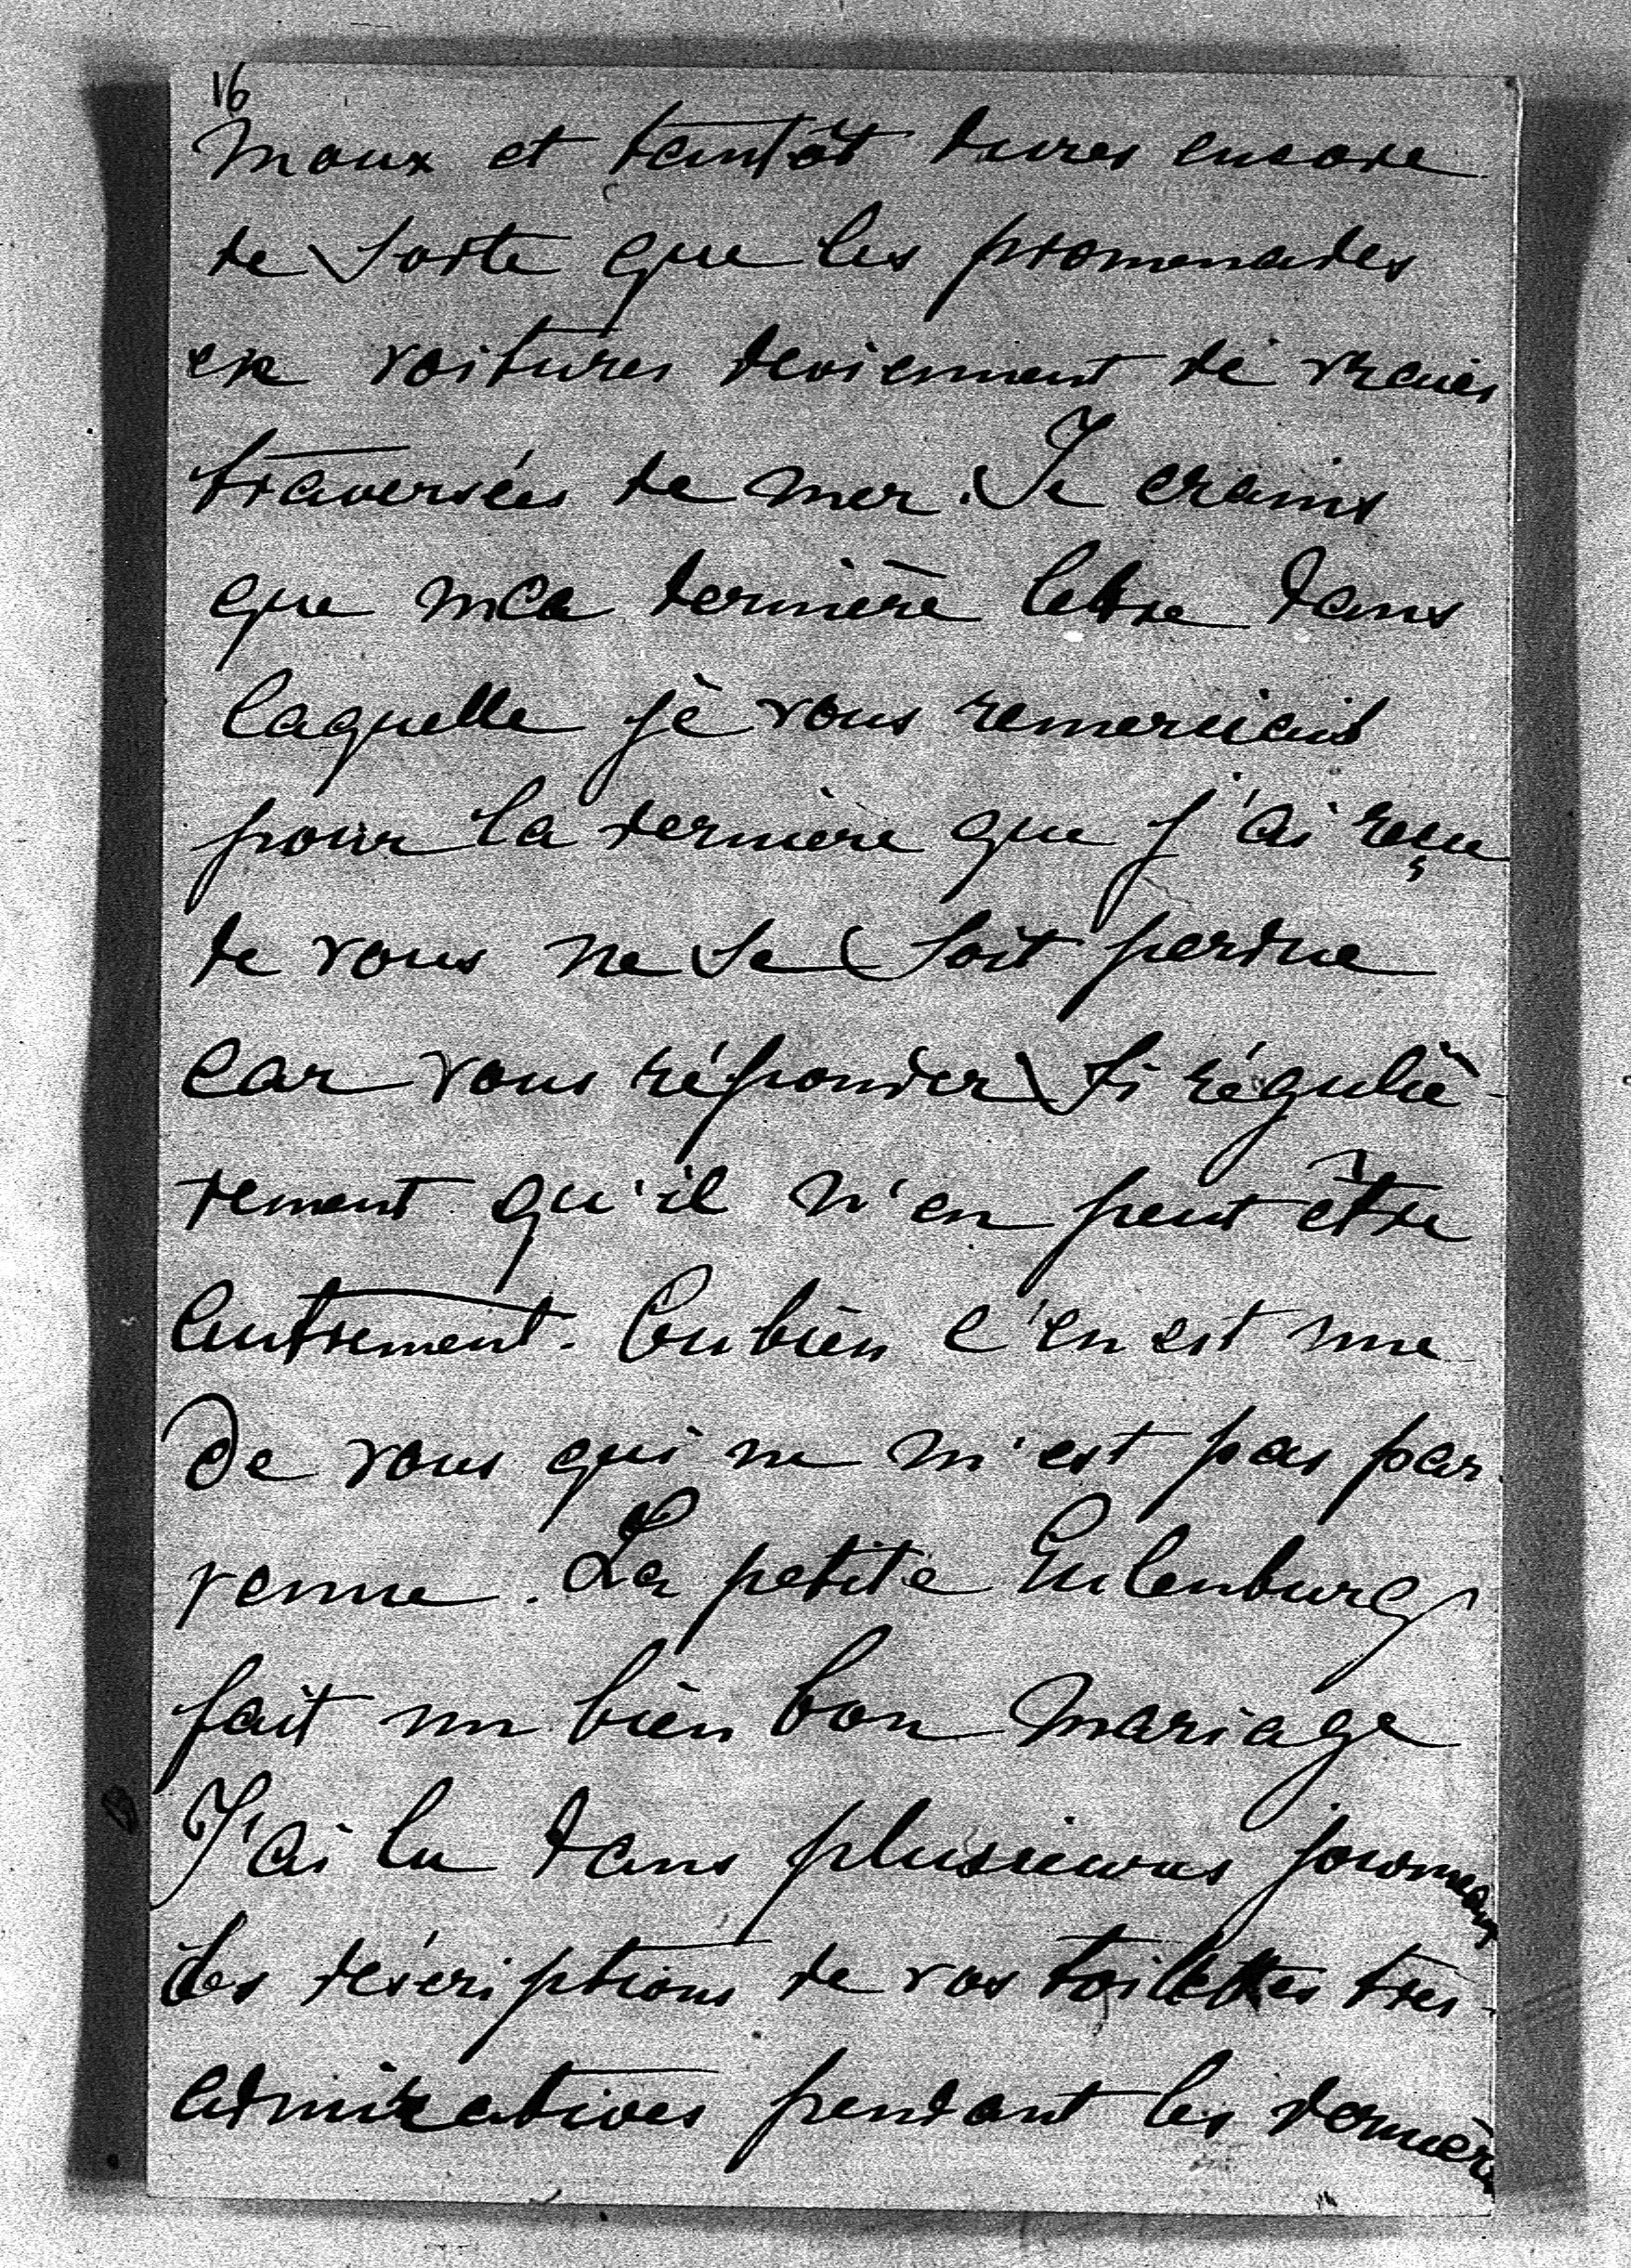 16
moux et tantôt dures encore
de sorte que les promenades
en voitures deviennent de vraies
traversées de mer. Je crains
que ma dernière lettre dans
laquelle je vous remerciais
pour la dernière que j'ai reçu
de vous ne se soit perdue
car vous répondez si réguliè-
rement qu'il n'en peut être
autrement. Ou bien c'en est une
de vous qui ne m'est pas par-
venue. La petite Eulenburg
fait un bien bon mariage
J'ai lu dans plusieurs journeaux
des déscriptions de vos toilettes très
admiratives pendant les dernièrs